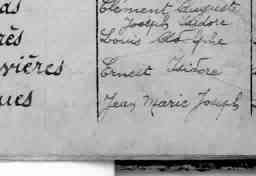 ds Clement Auguste
Joseph Isidore
rès Louis Adolphe
vières Ernest Isidore
ues Jean Marie Joseph